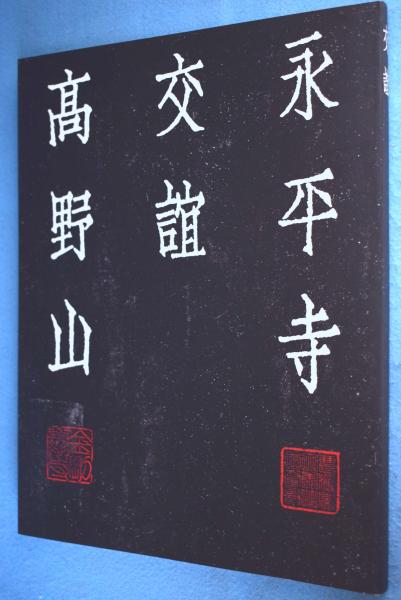 永平寺
交誼
髙野山